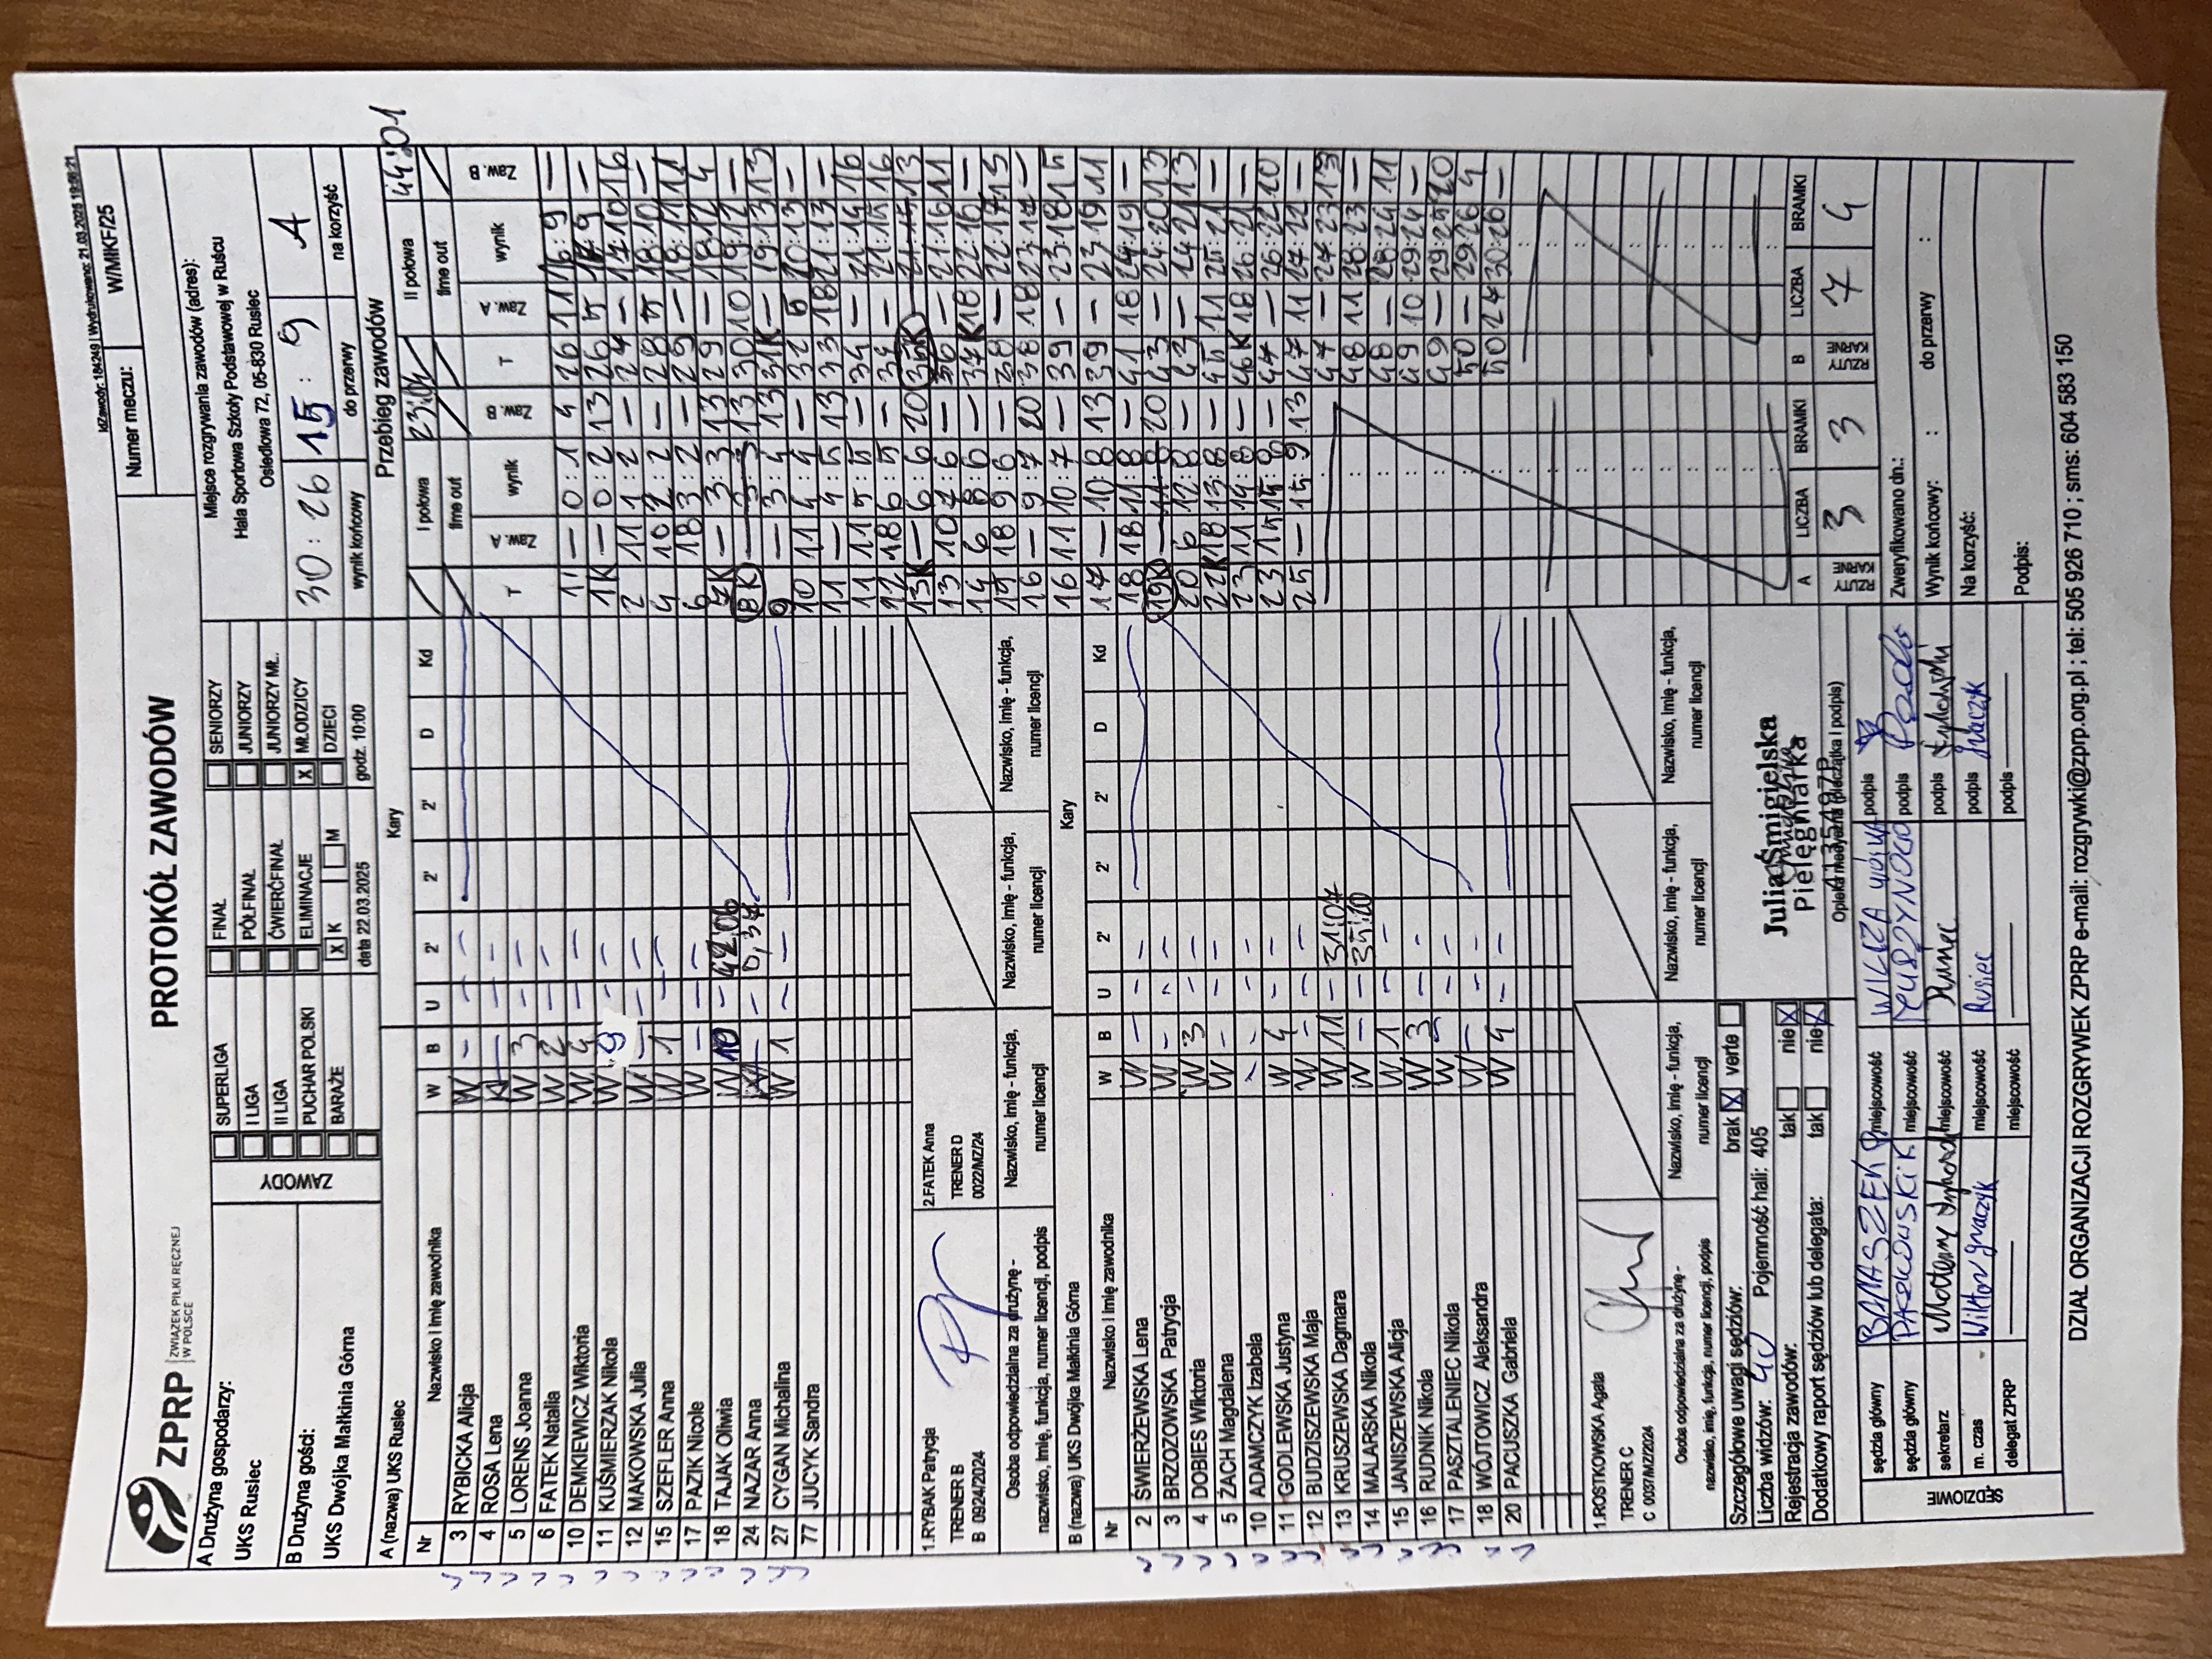 IdZawody: 184249 | Wydrukowano: 21.03.2025 19:56:21
ZPRP ZWIĄZEK PIŁKI RĘCZNEJ W POLSCE
PROTOKÓŁ ZAWODÓW
Numer meczu: W/MłKF/25
A Drużyna gospodarzy:
UKS Rusiec
B Drużyna gości:
UKS Dwójka Małkinia Górna
ZAWODY
SUPERLIGA FINAŁ SENIORZY
I LIGA PÓŁFINAŁ JUNIORZY
II LIGA ĆWIERĆFINAŁ JUNIORZY MŁ.
PUCHAR POLSKI ELIMINACJE X MŁODZICY
BARAŻE X K M DZIECI
data 22.03.2025 godz. 10:00
Miejsce rozgrywania zawodów (adres):
Hala Sportowa Szkoły Podstawowej w Ruścu
Osiedlowa 72, 05-830 Rusiec
30 : 26 15 : 9 A
wynik końcowy do przerwy na korzyść
A (nazwa) UKS Rusiec Kary
Nr Nazwisko i imię zawodnika W B U 2' 2' 2' D Kd
3 RYBICKA Alicja W -
4 ROSA Lena
5 LORENS Joanna W 3
6 FATEK Natalia W 2
10 DEMKIEWICZ Wiktoria W 4
11 KUŚMIERZAK Nikola W 9
12 MAKOWSKA Julia W
15 SZEFLER Anna W 1
17 PAZIK Nicole W -
18 TAJAK Oliwia W 10 - 42:06
24 NAZAR Anna
27 CYGAN Michalina W 1
77 JUCYK Sandra
1.RYBAK Patrycja 2.FATEK Anna
TRENER B TRENER D
B 0924/2024 0022/MZ/24
Osoba odpowiedzialna za drużynę - nazwisko, imię, funkcja, numer licencji, podpis
Nazwisko, imię - funkcja, numer licencji
Nazwisko, imię - funkcja, numer licencji
Nazwisko, imię - funkcja, numer licencji
B (nazwa) UKS Dwójka Małkinia Górna Kary
Nr Nazwisko i imię zawodnika W B U 2' 2' 2' D Kd
2 ŚWIERŻEWSKA Lena W -
3 BRZOZOWSKA Patrycja W -
4 DOBIES Wiktoria W 3
5 ŻACH Magdalena W -
10 ADAMCZYK Izabela
11 GODLEWSKA Justyna W 4
12 BUDZISZEWSKA Maja W -
13 KRUSZEWSKA Dagmara W 11 - 31:07
14 MALARSKA Nikola W - - 35:20
15 JANISZEWSKA Alicja W 1
16 RUDNIK Nikola W 3
17 PASZTALENIEC Nikola W
18 WÓJTOWICZ Aleksandra W -
20 PACUSZKA Gabriela W 4
1.ROSTKOWSKA Agata
TRENER C
C 0037/MZ/2024
Osoba odpowiedzialna za drużynę - nazwisko, imię, funkcja, numer licencji, podpis
Nazwisko, imię - funkcja, numer licencji
Nazwisko, imię - funkcja, numer licencji
Nazwisko, imię - funkcja, numer licencji
Szczegółowe uwagi sędziów: brak X verte
Liczba widzów: 40 Pojemność hali: 405
Rejestracja zawodów: tak nie X
Dodatkowy raport sędziów lub delegata: tak nie X
Julia Śmigielska
Pielęgniarka
Opieka medyczna (pieczątka i podpis)
SĘDZIOWIE
sędzia główny miejscowość podpis
sędzia główny miejscowość podpis
sekretarz miejscowość podpis
m. czas Wiktor Graczyk miejscowość Rusiec podpis Graczyk
delegat ZPRP miejscowość podpis
Przebieg zawodów
I połowa 23:04 II połowa 44:01
time out time out
T Zaw. A wynik Zaw. B T Zaw. A wynik Zaw. B
1 — 0:1 4 26 11 16:9 —
1K — 0:2 13 26 5 17:9 —
2 11 1:2 — 27 — 17:10 16
4 10 2:2 — 28 5 18:10 —
6 18 3:2 — 29 — 18:11 11
7K — 3:3 13 29 — 18:12 4
8K — 3:3 13 30 10 19:12 —
9 — 3:4 13 31K — 19:13 13
10 11 4:4 — 32 5 20:13 —
11 — 4:5 13 33 18 21:13 —
11 11 5:5 — 34 — 21:14 16
12 18 6:5 — 34 — 21:15 16
13K — 6:6 20 35K — 21:15 13
13 10 7:6 — 36 — 21:16 11
14 6 8:6 — 37K 18 22:16 —
15 18 9:6 — 38 — 22:17 15
16 — 9:7 20 38 18 23:17 —
16 11 10:7 — 39 — 23:18 15
17 — 10:8 13 39 — 23:19 11
18 18 11:8 — 41 18 24:19 —
19K — 11:8 20 43 — 24:20 13
20 6 12:8 — 43 — 24:21 13
22K 18 13:8 — 45 11 25:21 —
23 11 14:8 — 46K 18 26:21 —
23 15 15:8 — 47 — 26:22 20
25 — 15:9 13 47 11 27:22 —
47 — 27:23 13
48 11 28:23 —
48 — 28:24 11
49 10 29:24 —
49 — 29:25 20
50 — 29:26 4
50 24 30:26 —
A LICZBA BRAMKI B LICZBA BRAMKI
RZUTY KARNE 3 3 RZUTY KARNE 7 4
Zweryfikowano dn.:
Wynik końcowy: : do przerwy :
Na korzyść:
Podpis:
DZIAŁ ORGANIZACJI ROZGRYWEK ZPRP e-mail: rozgrywki@zprp.org.pl ; tel: 505 926 710 ; sms: 604 583 150